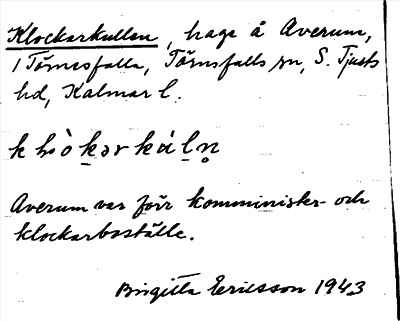 Klockarkullen, hage å Averum,
i Törnesfalla, Törnsfalls sn, S. Tjusts
hd, Kalmar l.
Averum var förr komminister- och
klockarboställe.
Birgitta Ericsson 1943